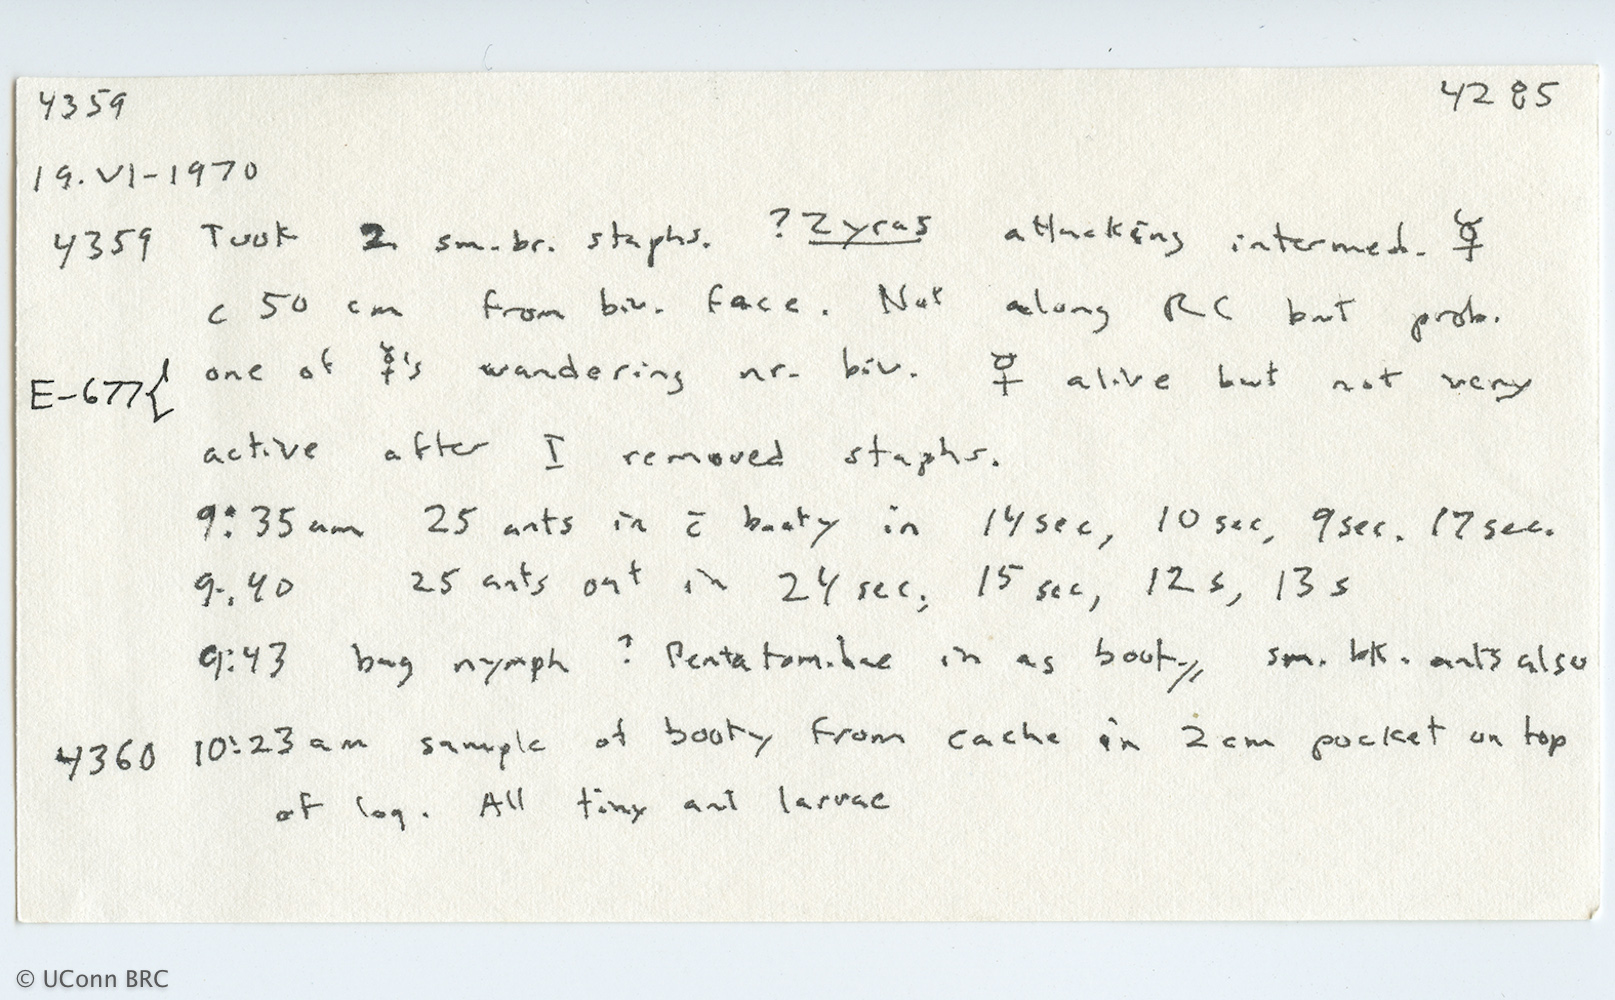 4359 4285
19.VI-1970
4359 Took 2 sm. br. staphs. ? Zyras attacking intermed. ☿
c 50 cm from biv. face. Not along RC but prob.
E-677{ one of ☿'s wandering nr. biv. ☿ alive but not very
active after I removed staphs.
9:35 am 25 ants in c̄ booty in 14 sec, 10 sec, 9 sec. 17 sec.
9:40 25 ants out in 24 sec, 15 sec, 12 s, 13 s
9:43 bug nymph ? Pentatomidae in as booty, sm. bk. ants also
4360 10:23 am sample of booty from cache in 2 cm pocket on top
of log. All tiny ant larvae
© UConn BRC